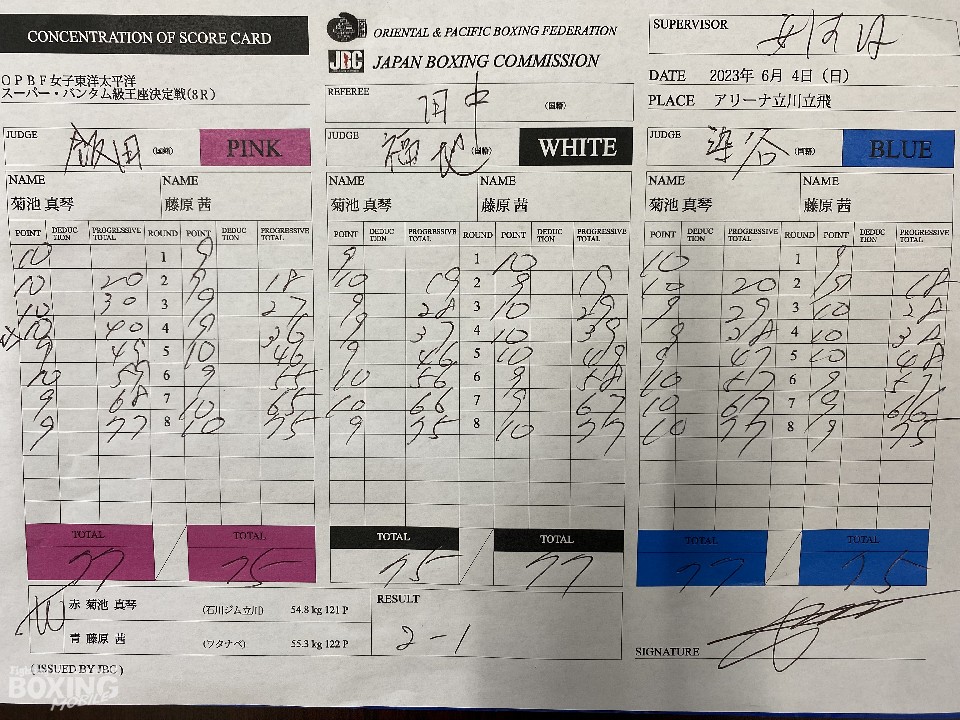 CONCENTRATION OF SCORE CARD
ORIENTAL & PACIFIC BOXING FEDERATION
JBC JAPAN BOXING COMMISSION
SUPERVISOR
DATE 2023年 6月 4日 (日)
PLACE アリーナ立川立飛
OPBF女子東洋太平洋
スーパー・バンタム級王座決定戦(8R)
REFEREE 田中 (国籍)
JUDGE 飯田 (国籍) PINK
JUDGE 福地 (国籍) WHITE
JUDGE 染谷 (国籍) BLUE
NAME NAME NAME NAME NAME NAME
菊池 真琴 藤原 茜 菊池 真琴 藤原 茜 菊池 真琴 藤原 茜
POINT DEDUCTION PROGRESSIVE TOTAL ROUND POINT DEDUCTION PROGRESSIVE TOTAL POINT DEDUCTION PROGRESSIVE TOTAL ROUND POINT DEDUCTION PROGRESSIVE TOTAL POINT DEDUCTION PROGRESSIVE TOTAL ROUND POINT DEDUCTION PROGRESSIVE TOTAL
10 1 9 9 1 10 10 1 9
10 20 2 9 18 10 19 2 9 19 10 20 2 9 18
10 30 3 9 27 9 28 3 10 29 9 29 3 10 28
10 40 4 9 36 9 37 4 10 39 9 38 4 10 38
9 49 5 10 46 9 46 5 10 49 9 47 5 10 48
10 59 6 9 55 10 56 6 9 58 10 57 6 9 57
9 68 7 10 65 10 66 7 9 67 10 67 7 9 66
9 77 8 10 75 9 75 8 10 77 10 77 8 9 75
TOTAL TOTAL TOTAL TOTAL TOTAL TOTAL
77 75 75 77 77 75
赤 菊池 真琴 (石川ジム立川) 54.8 kg 121 P
青 藤原 茜 (ワタナベ) 55.3 kg 122 P
RESULT
2-1
SIGNATURE
( ISSUED BY JBC )
BOXING
MOBILE